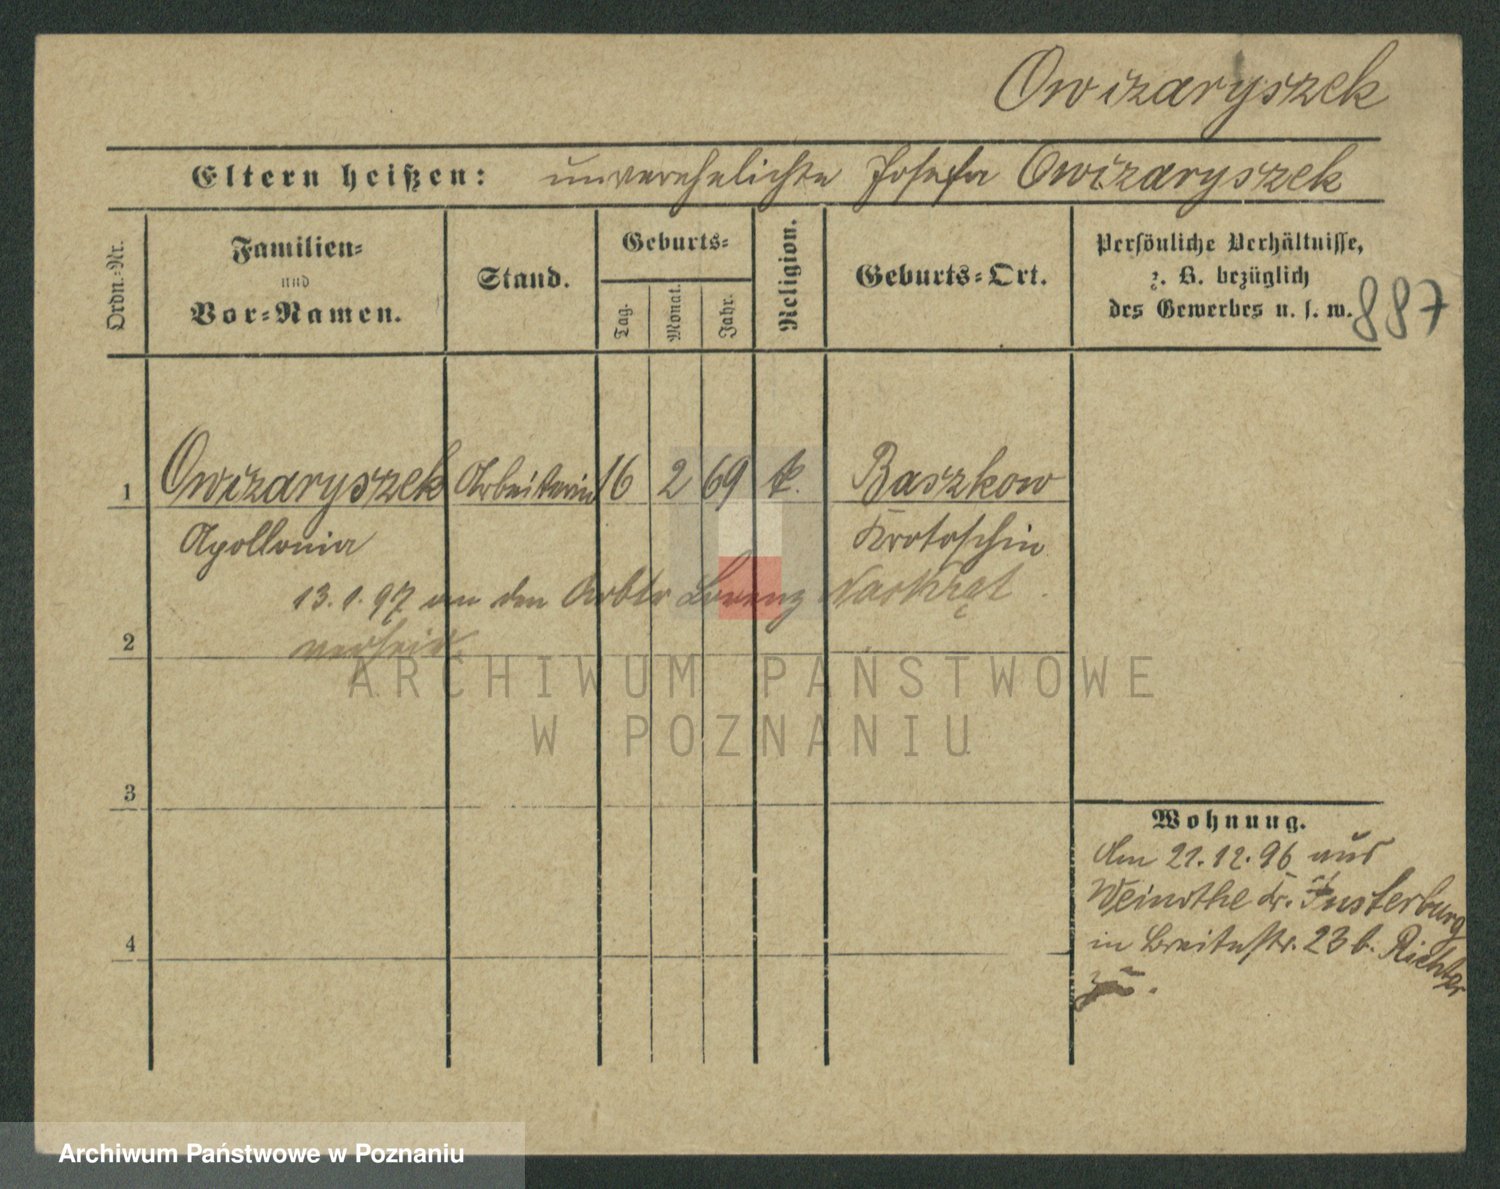 Owizaryszek
Eltern heißen: unverehelichte Josefa Owizaryszek
Ordn.-Nr.
Familien-
und
Vor-Namen.
Stand.
Geburts-
Tag.
Monat.
Jahr.
Religion.
Geburts-Ort.
Persönliche Verhältnisse,
z. B. bezüglich
des Gewerbes u. s. w.
887
1 Owizaryszek Arbeiterin 16 2 69 k. Baszkow
Apollonia Krotoschin
13.1.97 an den Arbtr Lorenz
2 verheir.
ARCHIWUM PAŃSTWOWE
W POZNANIU
3
Wohnung.
Am 21.12.96 aus
Kr. Insterburg
4 in Breitestr. 23 b. Richter
zu.
Archiwum Państwowe w Poznaniu